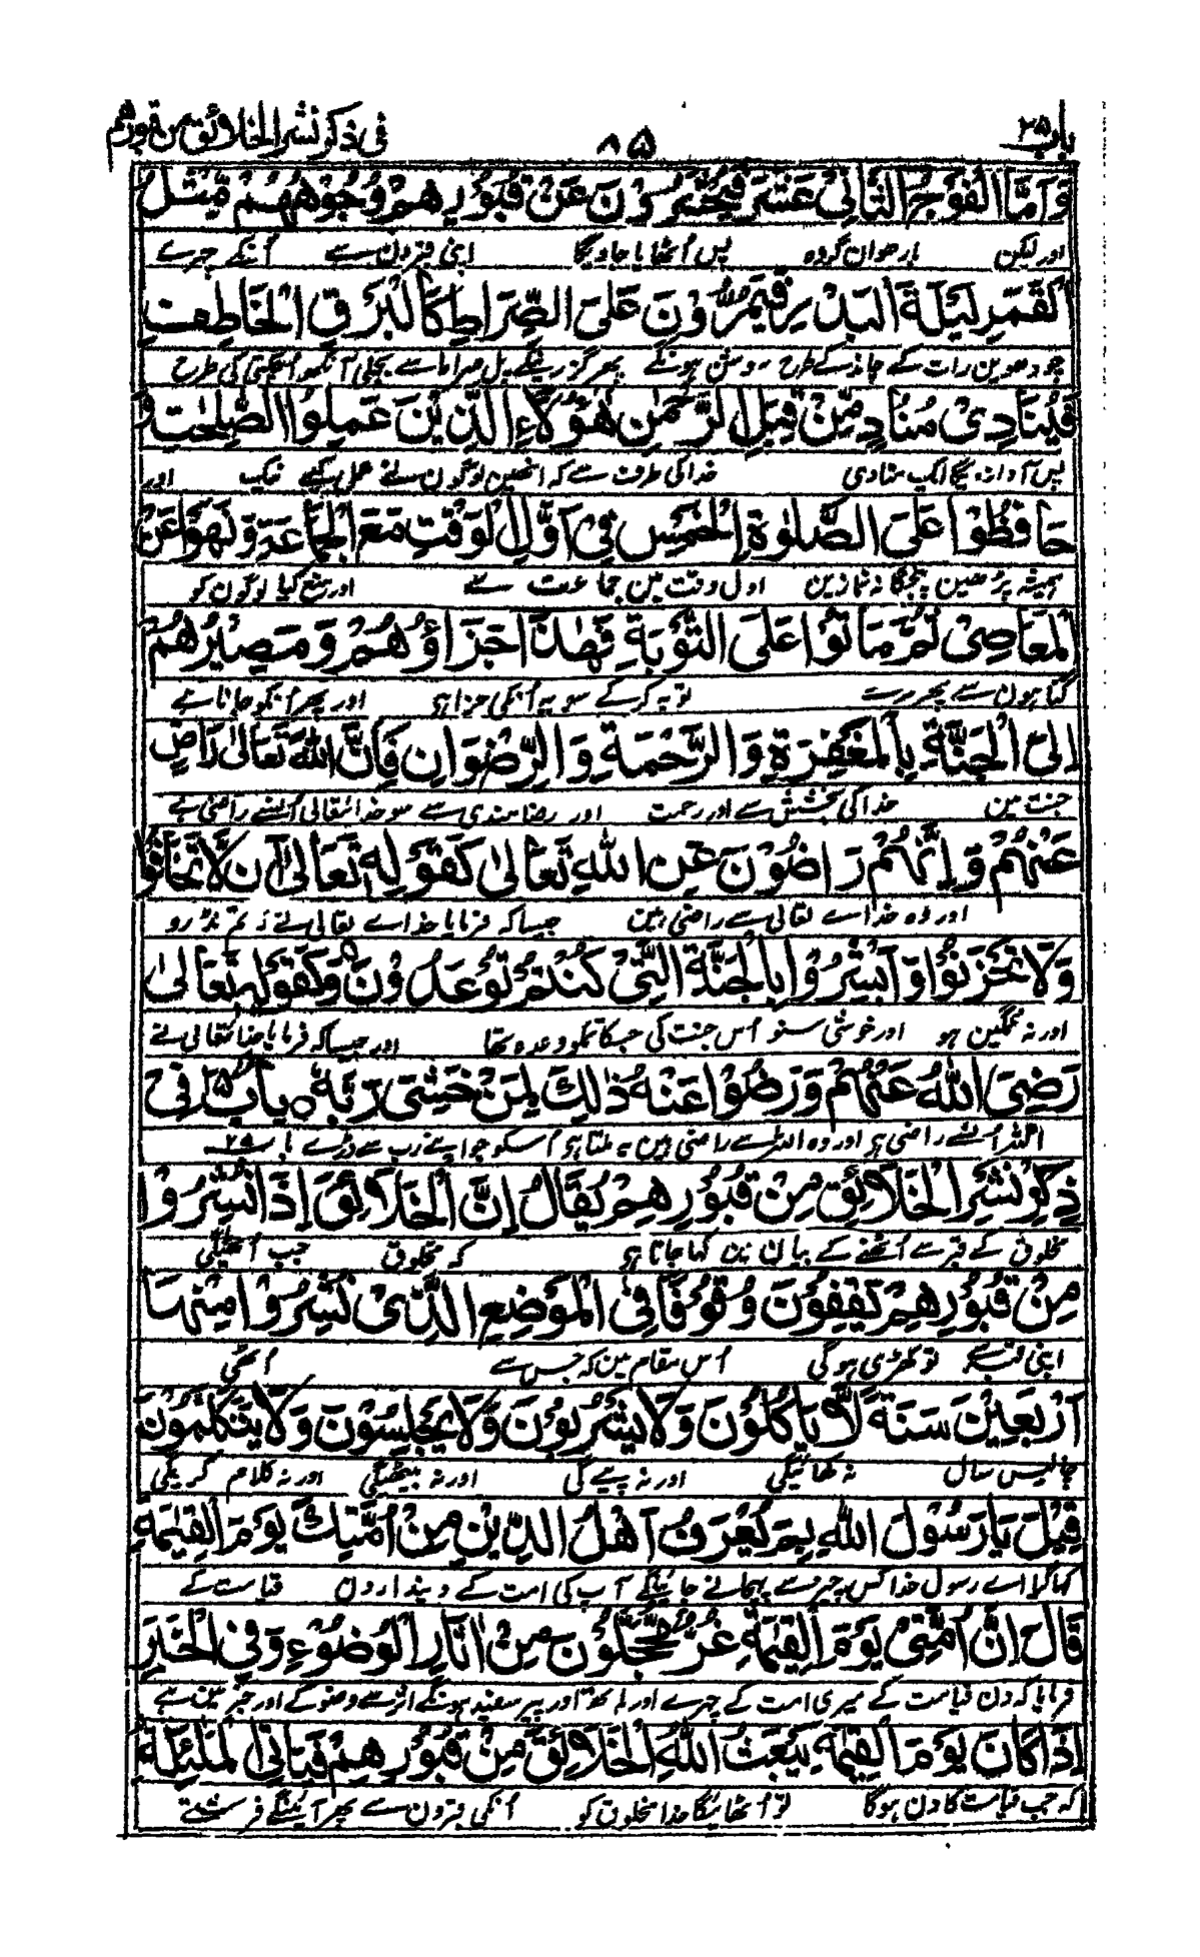 باب ۲۵
۸۵
فی ذکر نشر الخلائق من قبورهم
وَاَمَّا الْفَوْجُ الثَّانِیْ عَشَرَ فَیُحْشَرُوْنَ عَنْ قُبُوْرِهِمْ وُجُوْهُهُمْ مِّثْلُ
اور لیکن بارھوان گروہ پس اُٹھایا جاویگا اپنی قبرون سے اُنکے چہرے
الْقَمَرِ لَیْلَةَ الْبَدْرِ فَیَمُرُّوْنَ عَلَی الصِّرَاطِ کَالْبَرْقِ الْخَاطِفِ
چودھوین رات کے چاند کے طرح روشن ہونگے پھر گزرینگے پل صراط سے بجلی آنکھ اُچکتی کی طرح
فَیُنَادِیْ مُنَادٍ مِّنْ قِبَلِ الرَّحْمٰنِ هٰؤُلَآءِ الَّذِیْنَ عَمِلُوا الصّٰلِحٰتِ وَ
پس آواز دیگا ایک منادی خدا کی طرف سے کہ انھین لوگون نے عمل کیے نیک اور
حَافَظُوْا عَلَی الصَّلٰوةِ الْخَمْسِ فِیْ اَوَّلِ الْوَقْتِ مَعَ الْجَمَاعَةِ وَنَهَوْا عَنْ
ہمیشہ پڑھین پنجگانہ نمازین اول وقت مین جماعت سے اور منع کیا لوگون کو
الْمَعَاصِیْ ثُمَّ مَاتُوْا عَلَی التَّوْبَةِ فَهٰذَا جَزَاؤُهُمْ وَمَصِیْرُهُمْ
گناہون سے پھر مرے توبہ کرکے سو یہ اُنکی جزا ہی اور پھر اُنکو جانا ہے
اِلَی الْجَنَّةِ بِالْمَغْفِرَةِ وَالرَّحْمَةِ وَالرِّضْوَانِ فَاِنَّ اللّٰهَ تَعَالٰی رَاضٍ
جنت مین خدا کی بخشش سے اور رحمت اور رضامندی سے سو خدا تعالی اُنسے راضی ہے
عَنْهُمْ وَاِنَّهُمْ رَاضُوْنَ عَنِ اللّٰهِ تَعَالٰی کَقَوْلِهٖ تَعَالٰی اَنْ لَّا تَخَافُوْا
اور وہ خداے تعالی سے راضی ہین جیسا کہ فرمایا خداے تعالی نے نہ تم ڈرو
وَلَا تَحْزَنُوْا وَاَبْشِرُوْا بِالْجَنَّةِ الَّتِیْ کُنْتُمْ تُوْعَدُوْنَ وَکَقَوْلِهٖ تَعَالٰی
اور نہ غمگین ہو اور خوشی سنو اُس جنت کی جسکا تمکو وعدہ تھا اور جیسا کہ فرمایا خدا تعالی نے
رَضِیَ اللّٰهُ عَنْهُمْ وَرَضُوْا عَنْهُ ذٰلِكَ لِمَنْ خَشِیَ رَبَّهٗ ٥ بَابُ ۲۵ فِیْ
اللہ اُنسے راضی ہی اور وہ اللہ سے راضی ہین یہ ملتا ہی اُسکو جو اپنے رب سے ڈرے باب ۲۵
ذِکْرِ نَشْرِ الْخَلَائِقِ مِنْ قُبُوْرِهِمْ یُقَالُ اِنَّ الْخَلَائِقَ اِذَا نُشِرُوْا
مخلوق کے قبر سے اُٹھنے کے بیان مین کہا جاتا ہی کہ مخلوق جب اُٹھیگی
مِنْ قُبُوْرِهِمْ یَقِفُوْنَ وُقُوْفًا فِی الْمَوْضِعِ الَّذِیْ نُشِرُوْا مِنْهَا
اپنی قبر سے تو کھڑی ہوگی اُس مقام مین کہ جس سے اُٹھی
اَرْبَعِیْنَ سَنَةً لَّا یَاْکُلُوْنَ وَلَا یَشْرَبُوْنَ وَلَا یَجْلِسُوْنَ وَلَا یَتَکَلَّمُوْنَ
چالیس سال نہ کھائیگی اور نہ پیے گی اور نہ بیٹھیگی اور نہ کلام کریگی
قِیْلَ یَا رَسُوْلَ اللّٰهِ بِمَ یُعْرَفُ اَهْلُ الدِّیْنِ مِنْ اُمَّتِكَ یَوْمَ الْقِیٰمَةِ
کہا گیا اے رسول خدا کس چیز سے پہچانے جائینگے آپ کی امت کے دیندارون قیامت کے
قَالَ اِنَّ اُمَّتِیْ یَوْمَ الْقِیٰمَةِ غُرٌّ مُّحَجَّلُوْنَ مِنْ اٰثَارِ الْوُضُوْءِ وَفِی الْخَبَرِ
فرمایا کہ دن قیامت کے میری امت کے چہرے اور ہاتھ اور پیر سفید ہونگے اثر سے وضو کے اور خبر مین ہے
اِذَا کَانَ یَوْمَ الْقِیٰمَةِ یَبْعَثُ اللّٰهُ الْخَلَائِقَ مِنْ قُبُوْرِهِمْ فَیَاْتِی الْمَلٰئِکَةُ
کہ جب قیامت کا دن ہوگا تو اُٹھائیگا خدا مخلوق کو اُنکی قبرون سے پھر آئینگے فرشتے